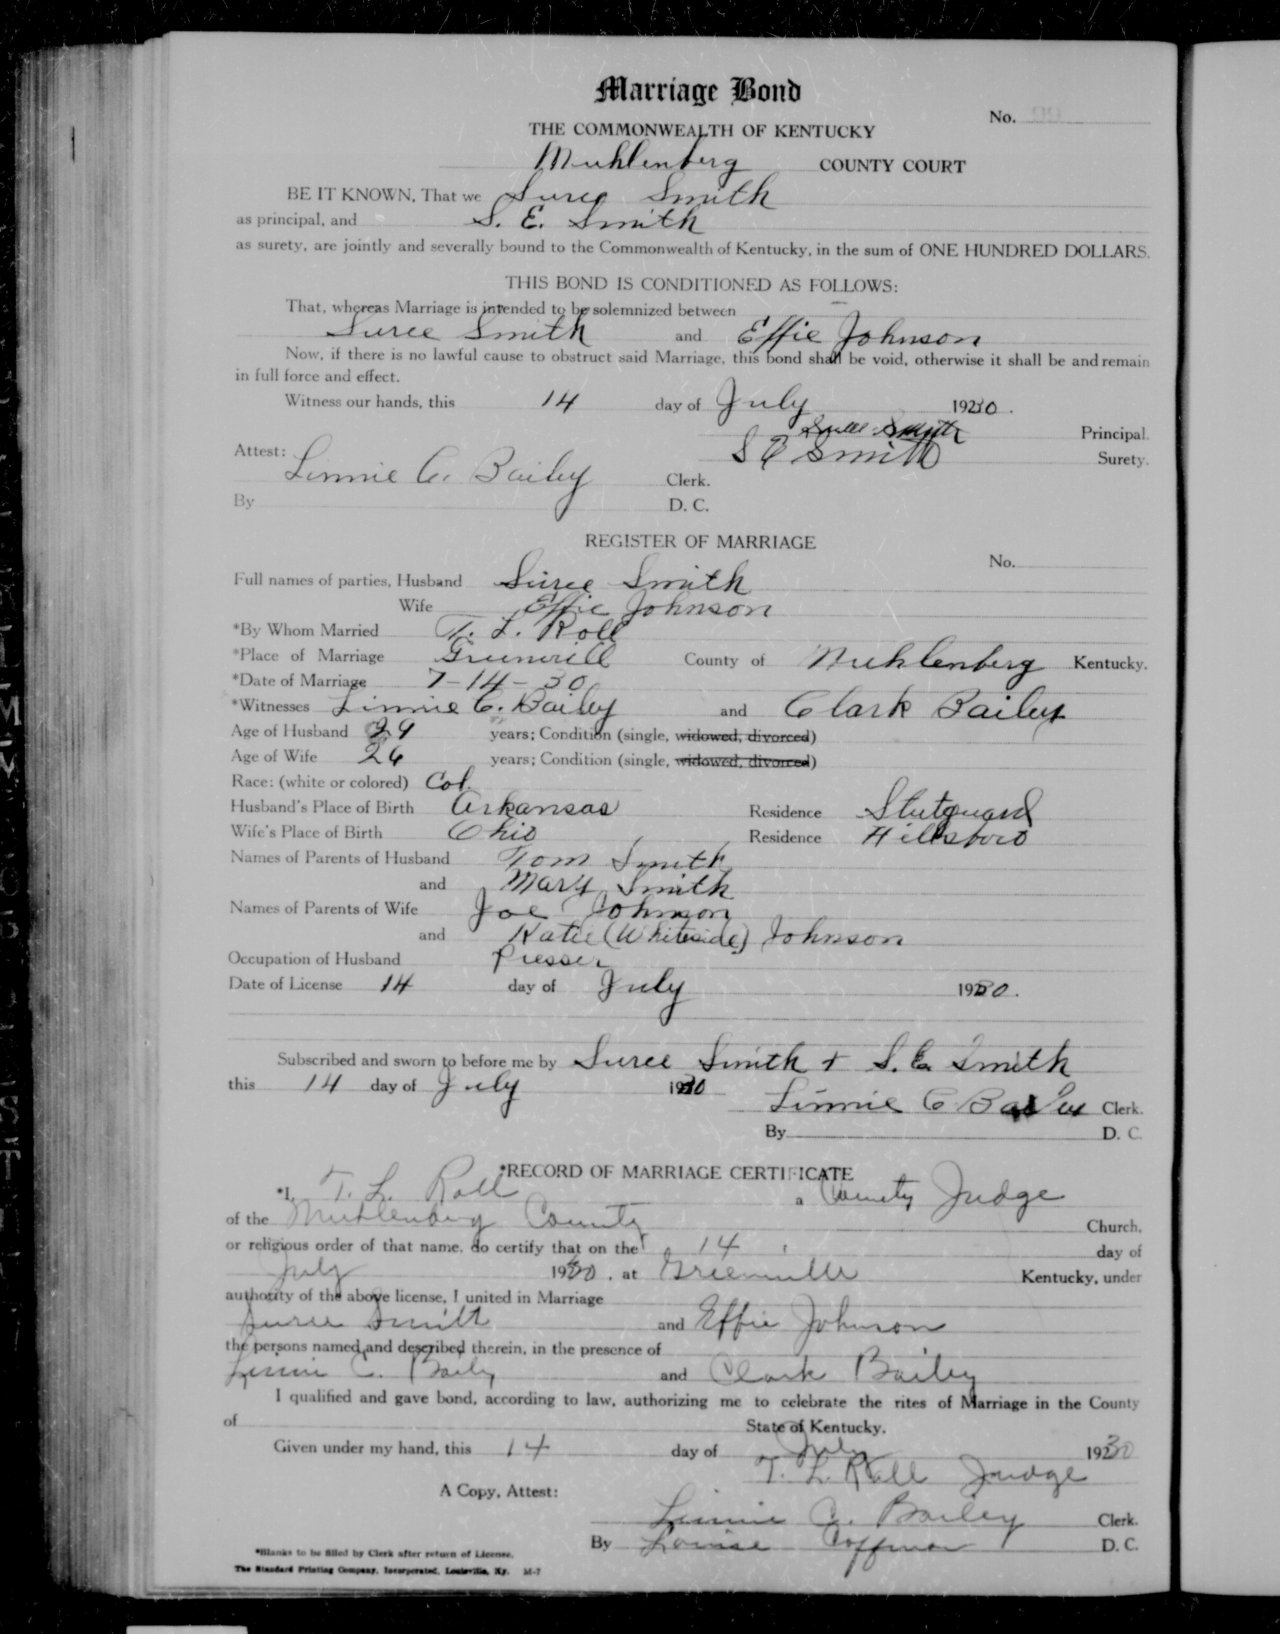 Marriage Bond
No.
THE COMMONWEALTH OF KENTUCKY
Muhlenberg COUNTY COURT
BE IT KNOWN, That we Suree Smith
as principal, and S. E. Smith
as surety, are jointly and severally bound to the Commonwealth of Kentucky, in the sum of ONE HUNDRED DOLLARS.
THIS BOND IS CONDITIONED AS FOLLOWS:
That, whereas Marriage is intended to be solemnized between
Suree Smith and Effie Johnson
Now, if there is no lawful cause to obstruct said Marriage, this bond shall be void, otherwise it shall be and remain
in full force and effect.
Witness our hands, this 14 day of July 1930.
Suree Smith Principal.
S E Smith Surety.
Attest: Linnie C. Bailey Clerk.
By D. C.
REGISTER OF MARRIAGE
No.
Full names of parties, Husband Suree Smith
Wife Effie Johnson
*By Whom Married T. L. Roll
*Place of Marriage Greenvill County of Muhlenberg Kentucky.
*Date of Marriage 7-14-30
*Witnesses Linnie C. Bailey and Clark Bailey
Age of Husband 29 years; Condition (single, widowed, divorced)
Age of Wife 26 years; Condition (single, widowed, divorced)
Race: (white or colored) Col.
Husband's Place of Birth Arkansas Residence Stutguard
Wife's Place of Birth Ohio Residence Hillsboro
Names of Parents of Husband Tom Smith
and Mary Smith
Names of Parents of Wife Joe Johnson
and Katie (Whiteside) Johnson
Occupation of Husband Presser
Date of License 14 day of July 1930.
Subscribed and sworn to before me by Suree Smith + S. E. Smith
this 14 day of July 1930
Linnie C Bailey Clerk.
By D. C.
*RECORD OF MARRIAGE CERTIFICATE
*I, T. L. Roll a County Judge
of the Muhlenberg County Church,
or religious order of that name, do certify that on the 14 day of
July 1930, at Greenville Kentucky, under
authority of the above license, I united in Marriage
Suree Smith and Effie Johnson
the persons named and described therein, in the presence of
Linnie C. Baily and Clark Bailey
I qualified and gave bond, according to law, authorizing me to celebrate the rites of Marriage in the County
of State of Kentucky.
Given under my hand, this 14 day of July 1930
T. L. Roll Judge
A Copy, Attest:
Linnie C. Bailey Clerk.
By Louise Coffman D. C.
*Blanks to be filled by Clerk after return of License.
The Standard Printing Company, Incorporated, Louisville, Ky. M-7